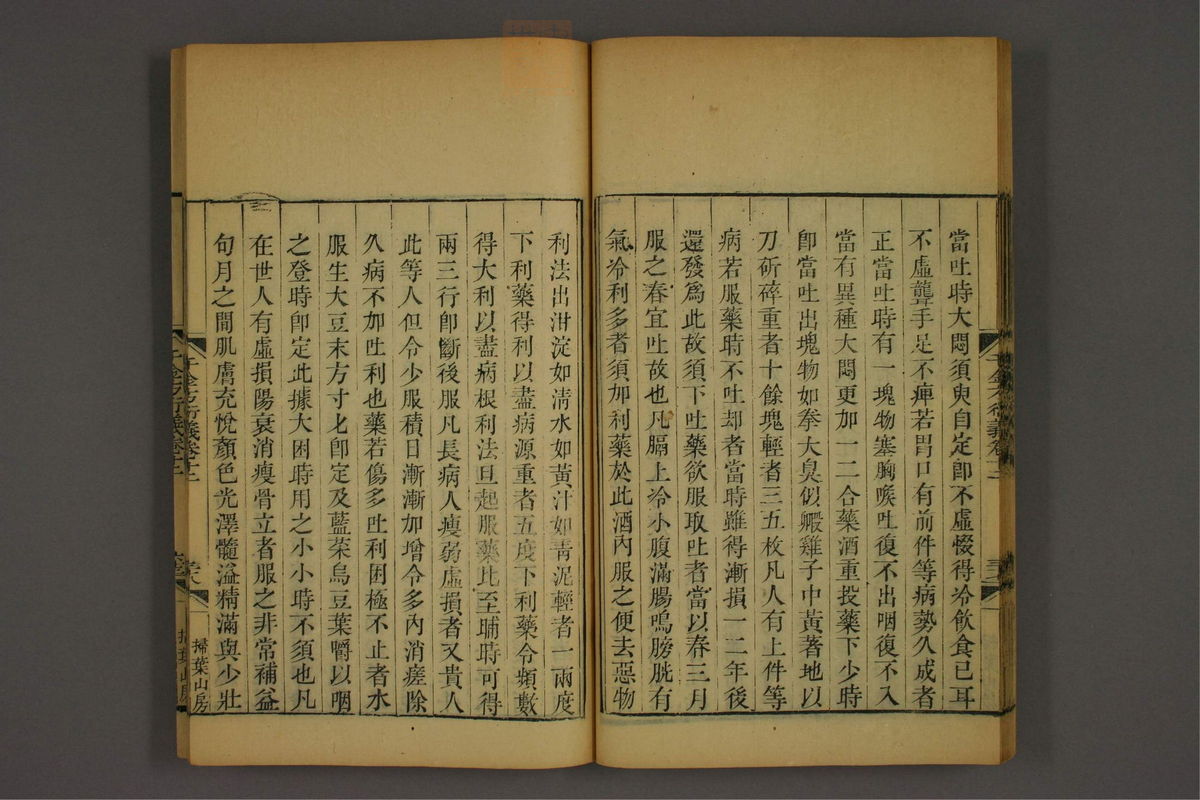 當吐時大悶須臾自定卽不虛惙得冷飲食已耳
不虛聾手足不痺若胃口有前件等病勢久成者
正當吐時有一塊物塞胸喉吐復不出咽復不入
當有異種大悶更加一二合藥酒重投藥下少時
卽當吐出塊物如拳大臭似毈雞子中黃著地以
刀斫碎重者十餘塊輕者三五枚凡人有上件等
病若服藥時不吐却者當時雖得漸損一二年後
還發爲此故須下吐藥欲服取吐者當以春三月
服之春宜吐故也凡膈上冷小腹滿腸鳴膀胱有
氣冷利多者須加利藥於此酒內服之便去惡物
利法出泔淀如淸水如黃汁如靑泥輕者一兩度
下利藥得利以盡病源重者五度下利藥令頻數
得大利以盡病根利法旦起服藥比至晡時可得
兩三行卽斷後服凡長病人瘦弱虛損者又貴人
此等人但令少服積日漸漸加增令多內消瘥除
久病不加吐利也藥若傷多吐利困極不止者水
服生大豆末方寸匕卽定及藍葉烏豆葉嚼以咽
之登時卽定此據大困時用之小小時不須也凡
在世人有虛損陽衰消瘦骨立者服之非常補益
旬月之間肌膚充悅顏色光澤髓溢精滿與少壯
千金方衍義卷十二
掃葉山房